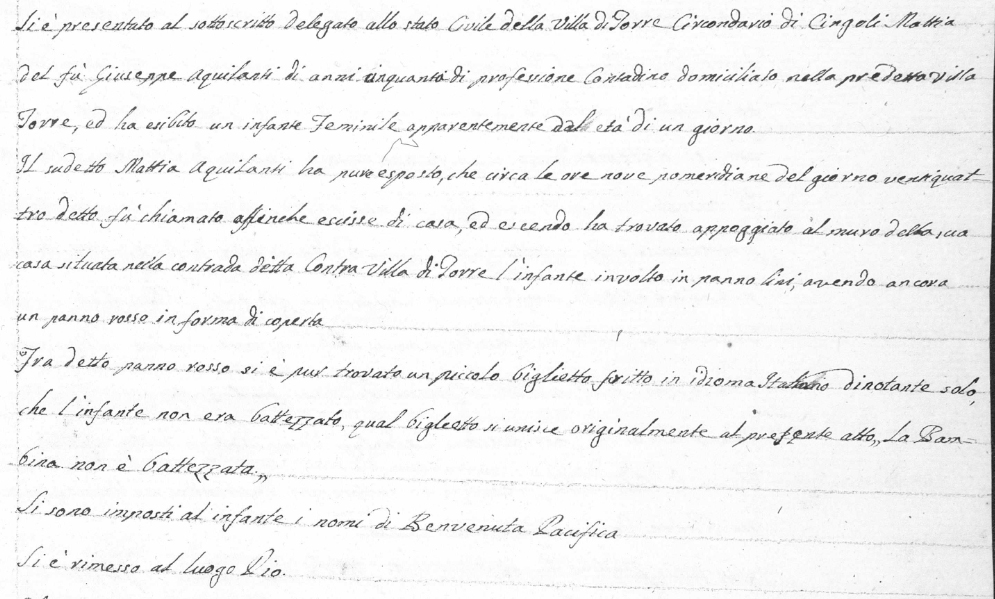 Si è presentato al sottoscritto delegato allo stato Civile della Villa di Torre Circondario di Cingoli Mattia
del fù Giuseppe Aquilanti di anni cinquanta di professione Contadino domiciliato nella predetta villa
Torre, ed ha esibito un infante Feminile apparentemente dal età di un giorno.
Il sudetto Mattia Aquilanti ha pure esposto, che circa le ore nove pomeridiane del giorno ventiquat-
tro detto fù chiamato affinche escisse di casa, ed escendo ha trovato appoggiato al muro della sua
casa situata nella contrada detta Contra Villa di Torre l'infante involto in panno lini, avendo ancora
un panno rosso in forma di coperta
Fra detto panno rosso si è pur trovato un piccolo biglietto scritto in idioma Italiano dinotante solo,
che l'infante non era battezzato, qual biglietto si unisce originalmente al presente atto „ La Bam=
bina non è battezzata. „
Si sono imposti al infante i nomi di Benvenuta Pacifica
Si è rimesso al luogo Pio.